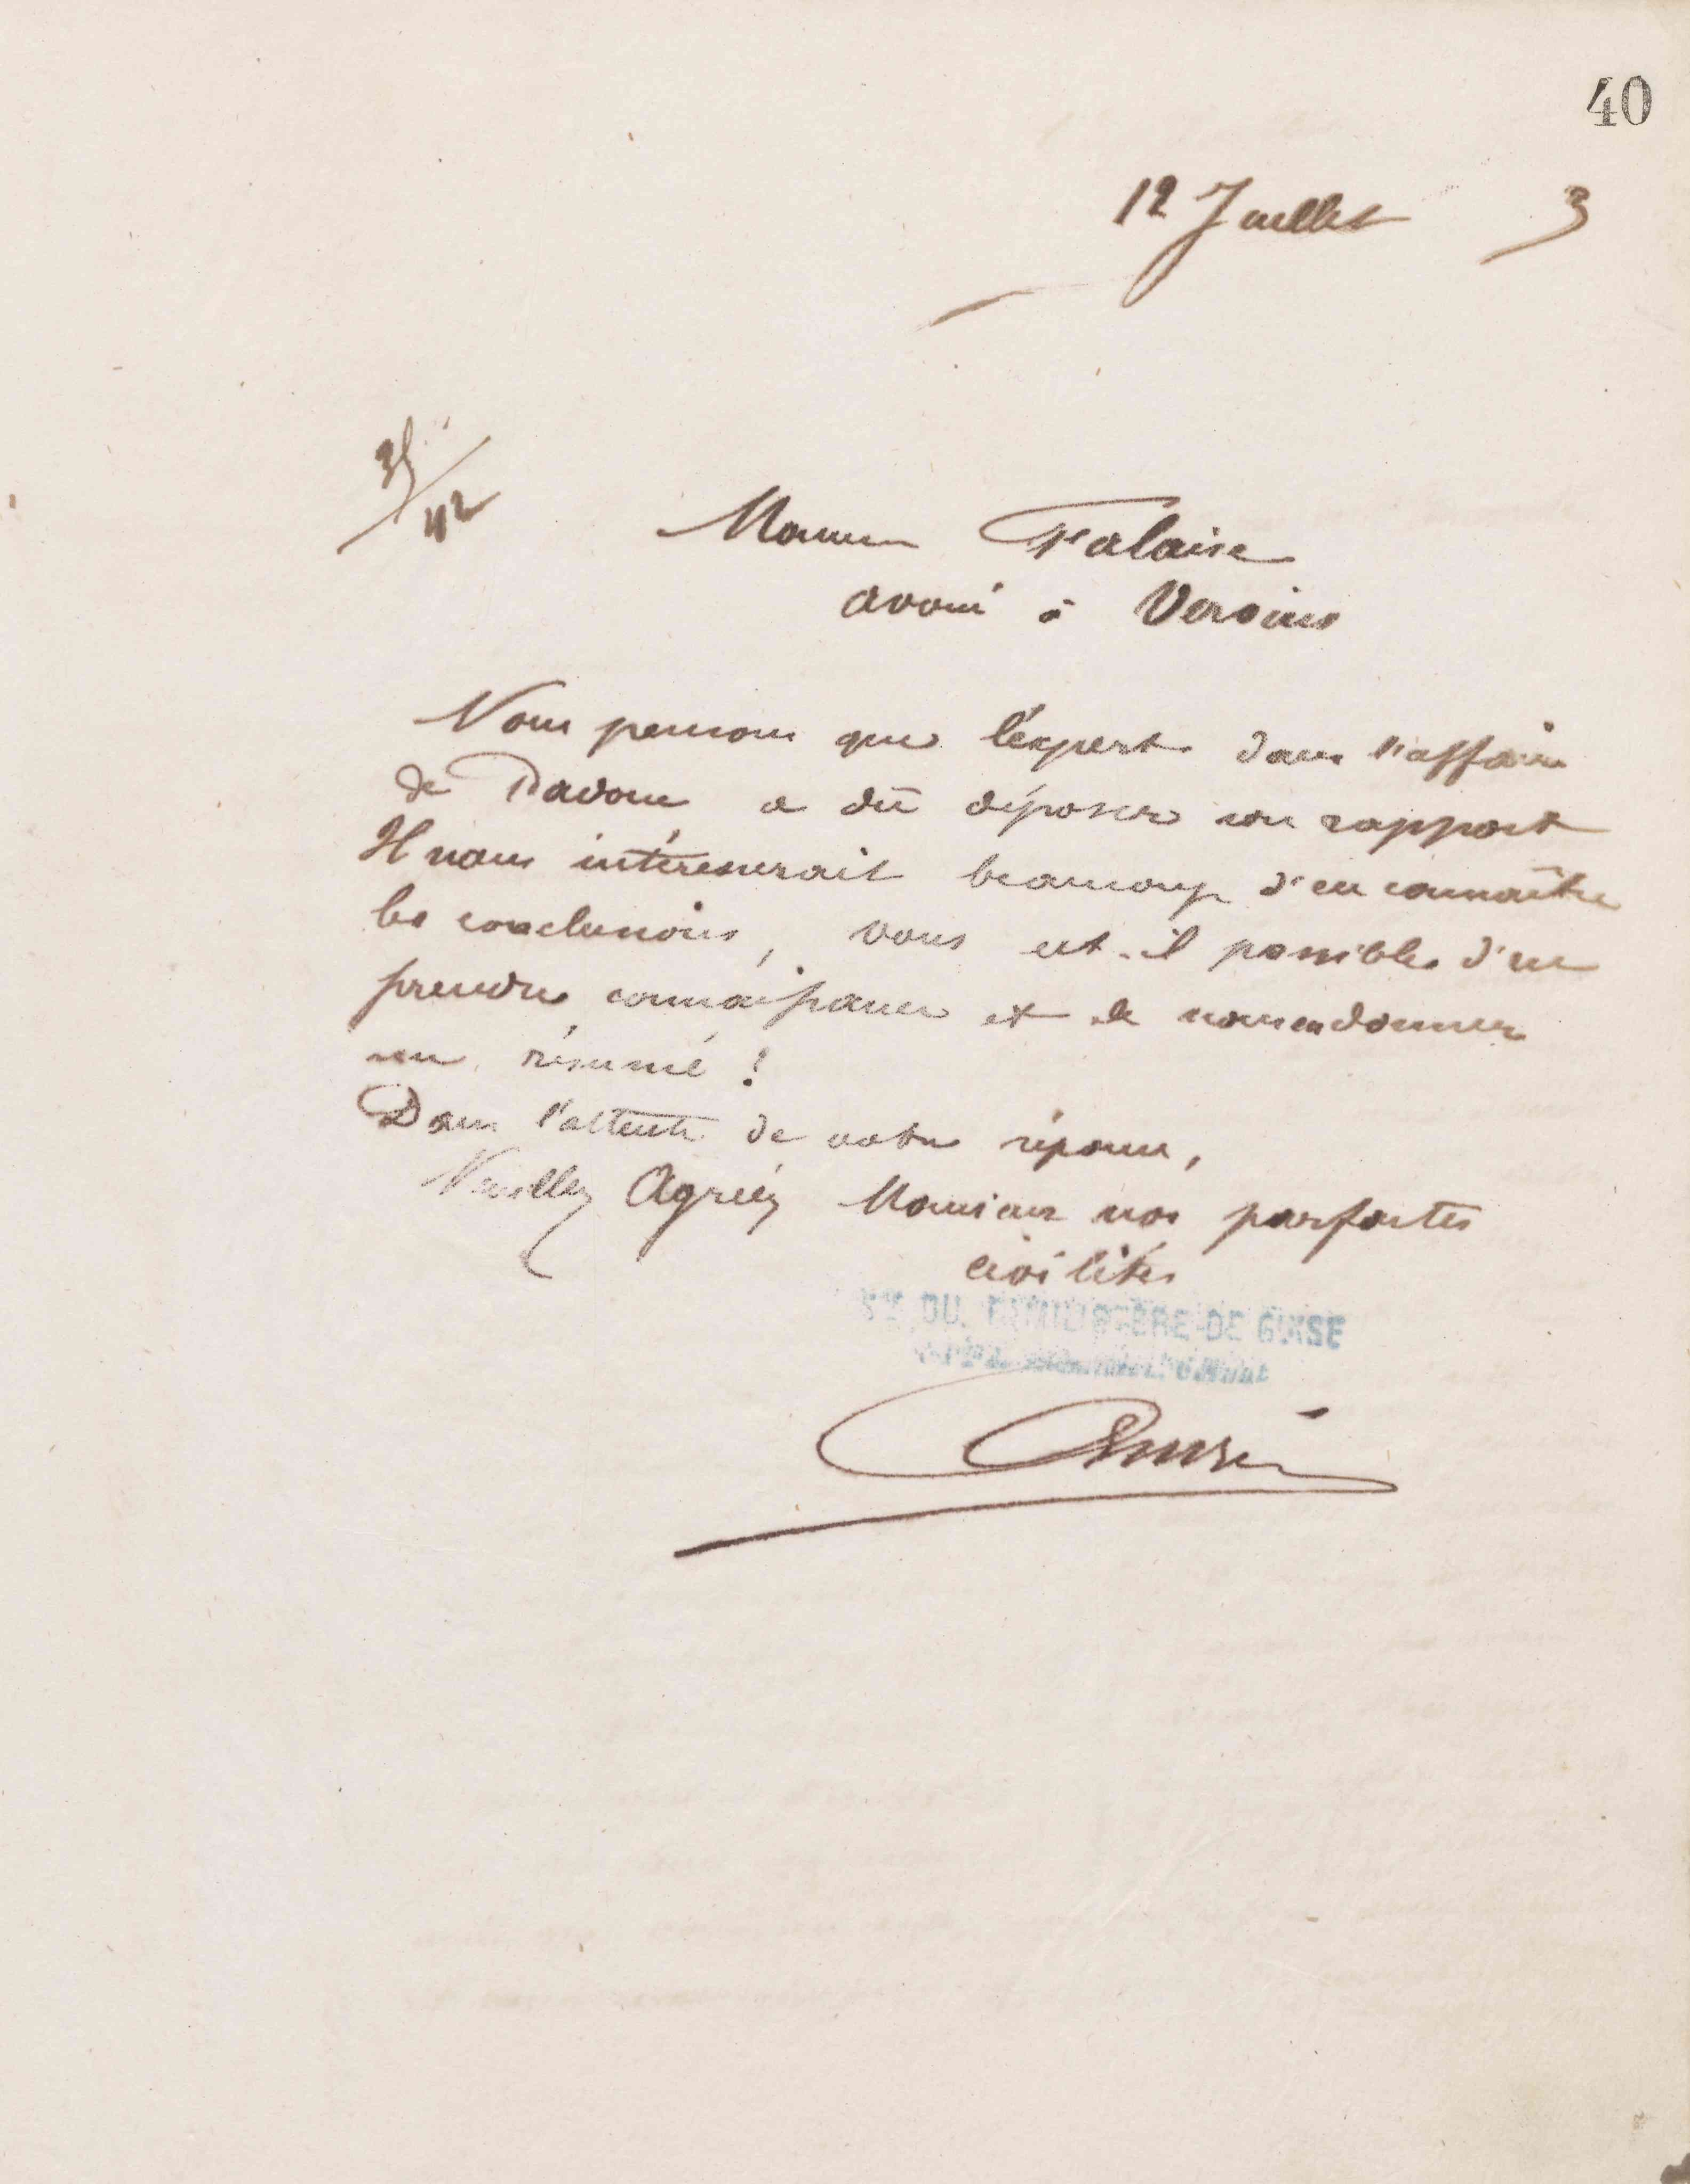 40
12 Juillet 3
35/42
Monsieur Falaise
avoué à Vervins
Nous pensons que l'expert dans l'affaire
de Davoux a dû déposer son rapport
Il nous intéresserait beaucoup d'en connaître
les conclusions, vous est-il possible d'en
prendre connaissance et de nous en donner
un résumé ?
Dans l'attente de votre réponse,
Veuillez Agréer Monsieur nos parfaites
civilités
Sté DU FAMILISTÈRE DE GUISE